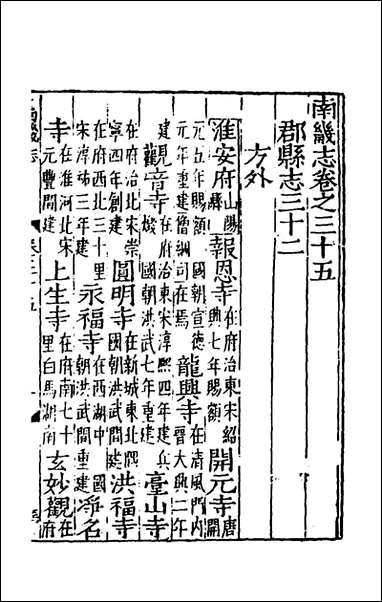 南畿志卷之三十五
郡縣志三十二
方外
淮安府山陽縣報恩寺在府治東宋紹興七年賜額開元寺唐開
元五年賜額國朝宣德元年重建僧綱司在焉龍興寺在清風門內晉大興二年
建觀音寺在府治東宋淳熙四年建兵燬國朝洪武七年重建臺山寺
在府治北宋崇寧四年創建圓明寺在新城東北隅國朝洪武間建洪福寺
在府西北三十里宋淳祐三年建永福寺在西湖中國朝洪武間重建淨名
寺在淮河北宋元豐間建上生寺在府南七十里白馬湖南玄妙觀在府